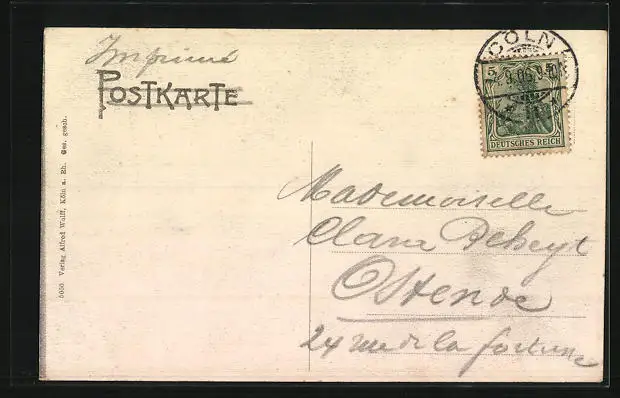 Imprimé
POSTKARTE
CÖLN
5
DEUTSCHES REICH
Mademoiselle
Clara
Ostende
24 rue de la fortune
5050 Verlag Alfred Wolff, Köln a. Rh. Ges. gesch.